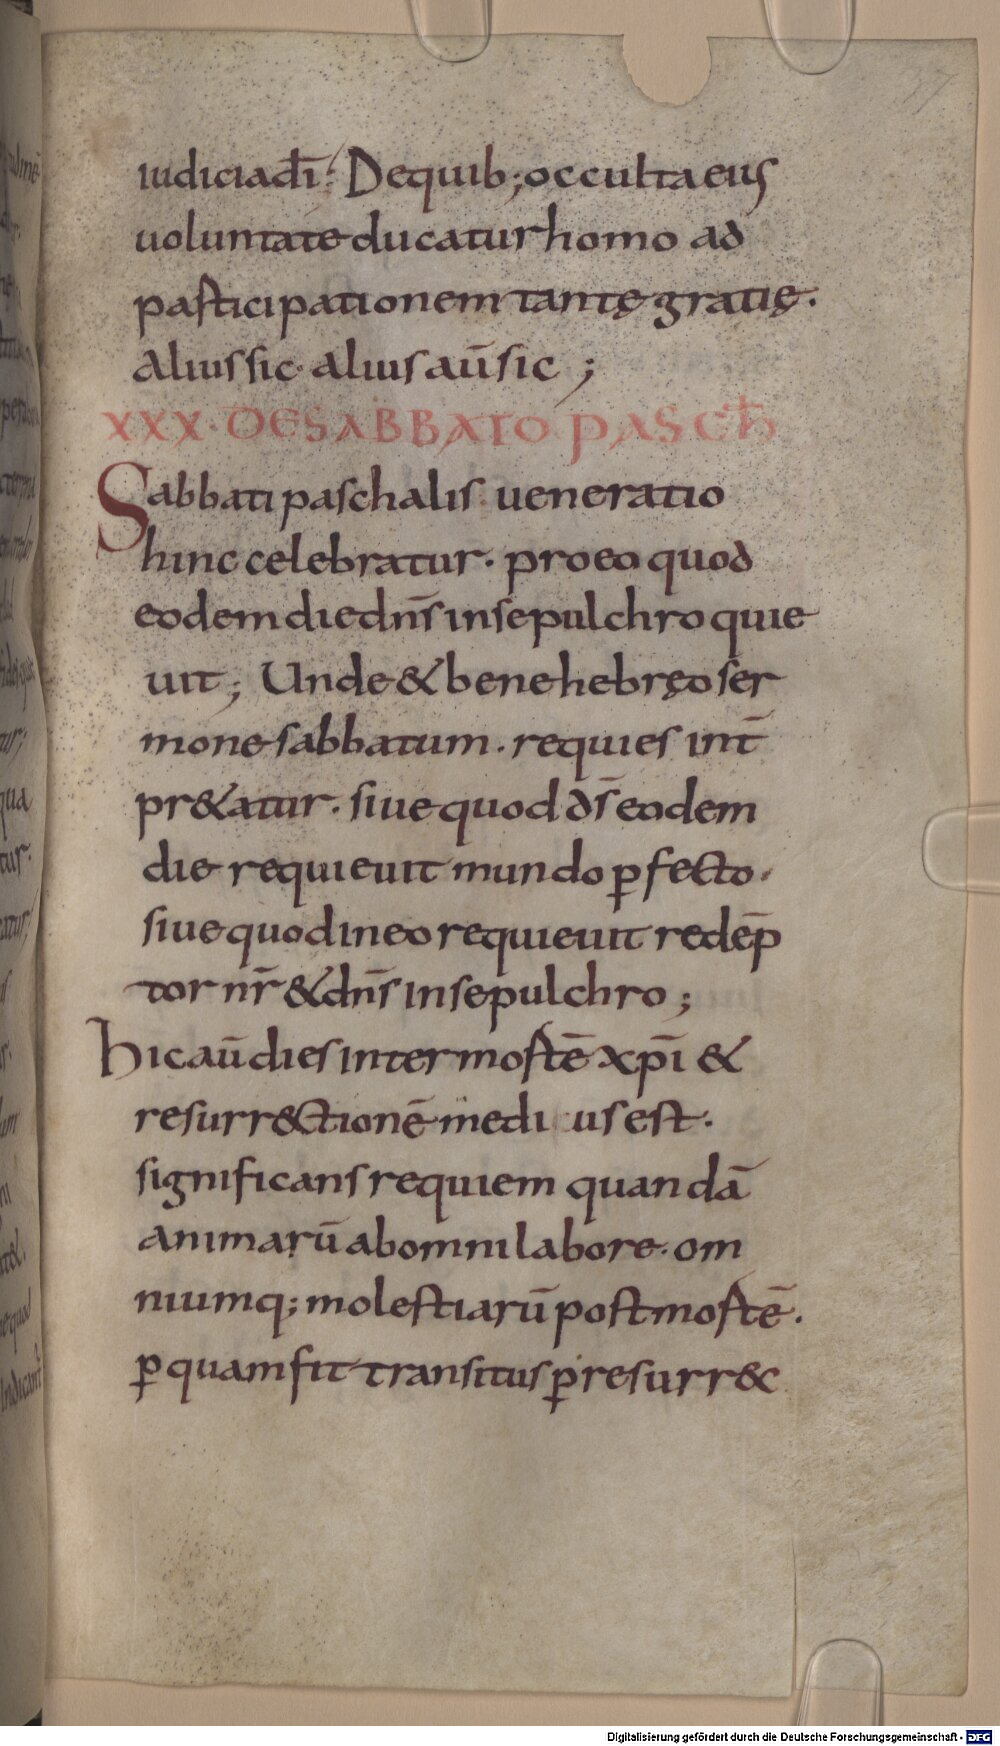 37
iudicia dī; De quib; occulta eius
uoluntate ducatur homo ad
participationem tantę gratię.
alius sic. alius aū sic;
XXX. DE SABBATO PASCħ
Sabbati paschalis ueneratio
hinc celebratur. pro eo quod
eodem die dn̄s in sepulchro quie
uit; Unde & bene hebręo ser
mone sabbatum. requies int̄
pr&atur. siue quod ds̄ eodem
die requieuit mundo ꝑfecto.
siue quod in eo requieuit redēp
tor nr̄ & dn̄s in sepulchro;
hic aū dies inter mortē xp̄i &
resurr&ctionē medi us est.
significans requiem quandā
animarū ab omni labore. om
niumq; molestiarū post mortē.
ꝑ quam fit transitus ꝑ resurr&c
Digitalisierung gefördert durch die Deutsche Forschungsgemeinschaft - DFG